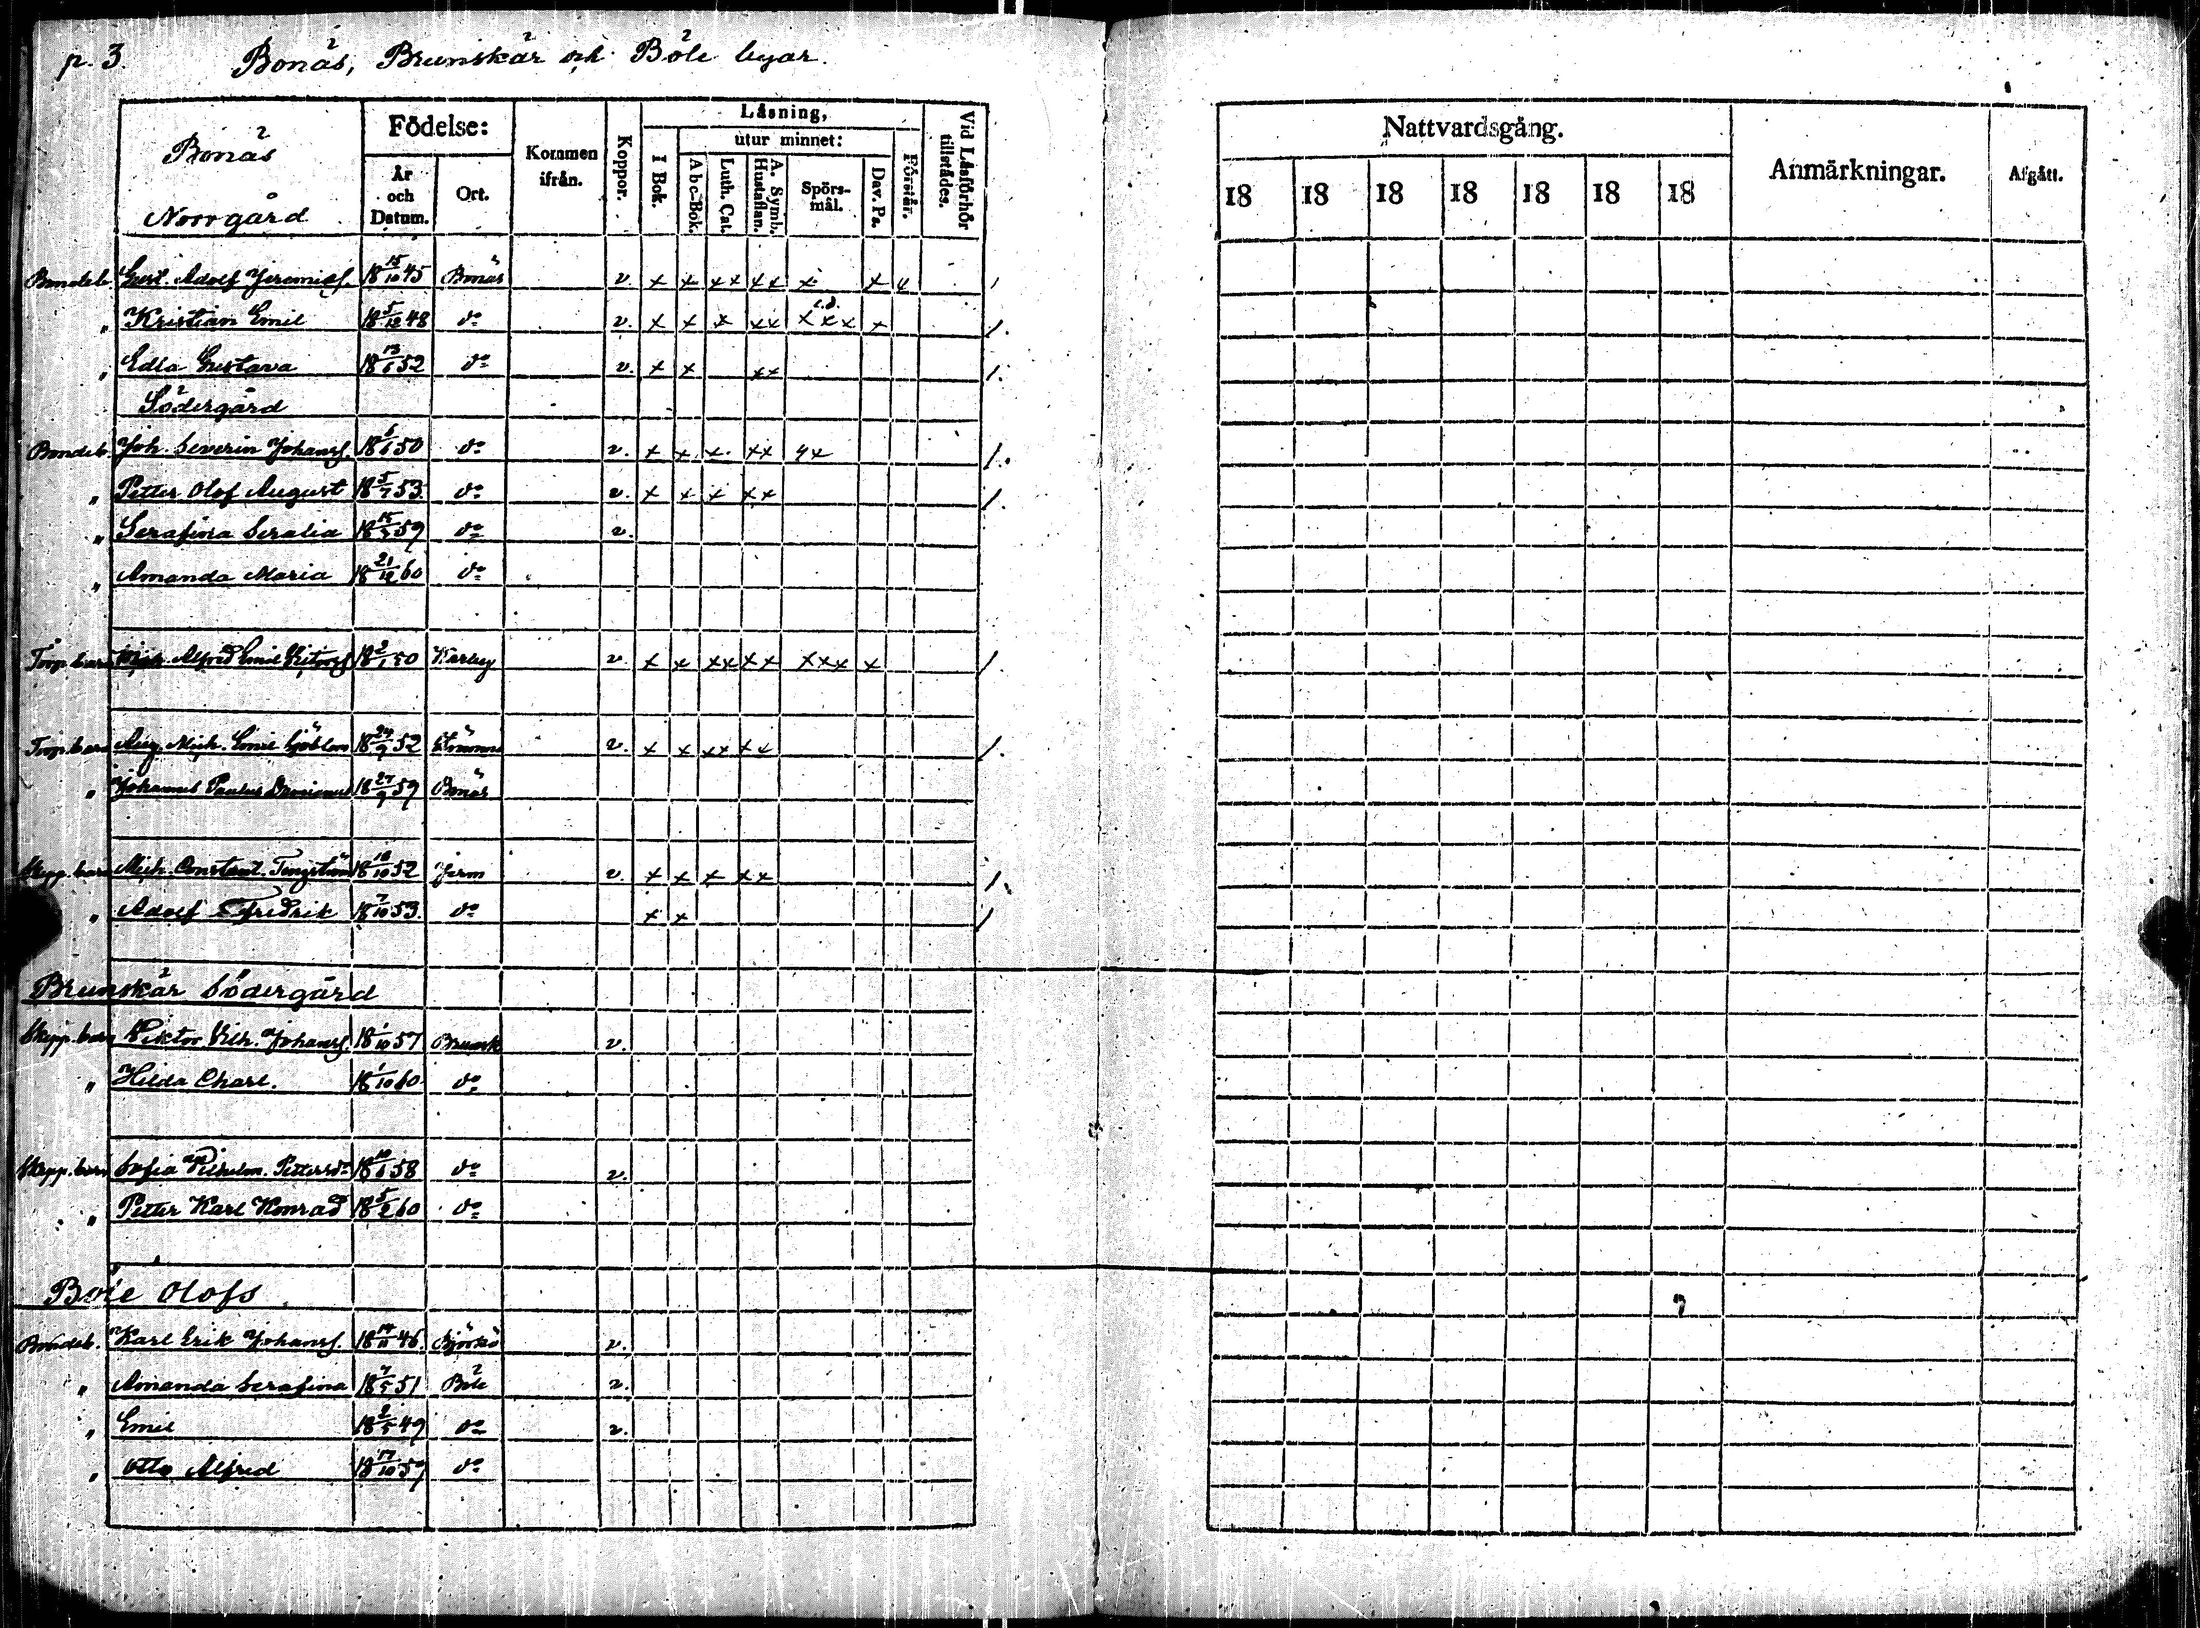 p. 3. Bonäs, Brunskär och Böle byar.
Bonäs
Norrgård
Födelse:
År och Datum.
Ort.
Kommen ifrån.
Koppor.
Läsning,
I Bok.
utur minnet:
Abc-Bok.
Luth. Cat.
A. Symb. Hustaflan.
Spörs-mål.
Dav. Ps.
Förstår.
Vid Läsförhör tillstädes.
Nattvardsgång.
18 18 18 18 18 18 18
Anmärkningar.
Afgått.
Bondeb. Gust. Adolf Jeremiess. 18 15/10 45 Bonäs v. x x xx xx x x x /
" Kristian Emil 18 5/12 48 do v. x x x xx xxx x /.
" Edla Gustava 18 13/6 52 do v. x x xx /.
Södergård
Bondeb. Joh. Severin Johanss. 18 6/6 50 do v. x x x xx xx /.
" Petter Olof August 18 5/7 53 do v. x x x xx /.
" Serafina Seralia 18 15/3 59 do v.
" Amanda Maria 18 21/12 60 do
Torp.barn Alfred Emil 18 2/1 50 Karby v. x x xx xx xxx x /.
Torp.barn Aug. Mich. Emil Sjöblom 18 24/9 52 v. x x xx xx /.
" Johannes Paulus 18 27/9 59 Bonäs
Skepp.barn Mich. Constant. Tengström 18 18/10 52 Jerm v. x x x xx /.
" Adolf Fredrik 18 7/10 53 do x x /
Brunskär Södergård
Skepp.barn Viktor Vilh. Johanss. 18 1/10 57 Brunsk v.
" Hilda Charl. 18 1/10 60 do
Skepp.barn Sofia Vilhelm. Pettersdr 18 10/6 58 do v.
" Petter Karl Konrad 18 5/2 60 do
Böle Olofs
Bondeb. Karl Erik Johanss. 18 14/11 46 Björkö v.
" Amanda Serafina 18 7/5 51 Böle v.
" Emil 18 2/5 49 do v.
" Otto Alfred 18 17/10 59 do